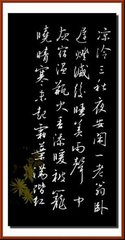 凉冷三秋夜安閑一老翁卧
遲燈滅後睡美雨聲中
灰宿温瓶火香添暖被籠
曉晴寒未起霜葉滿階紅